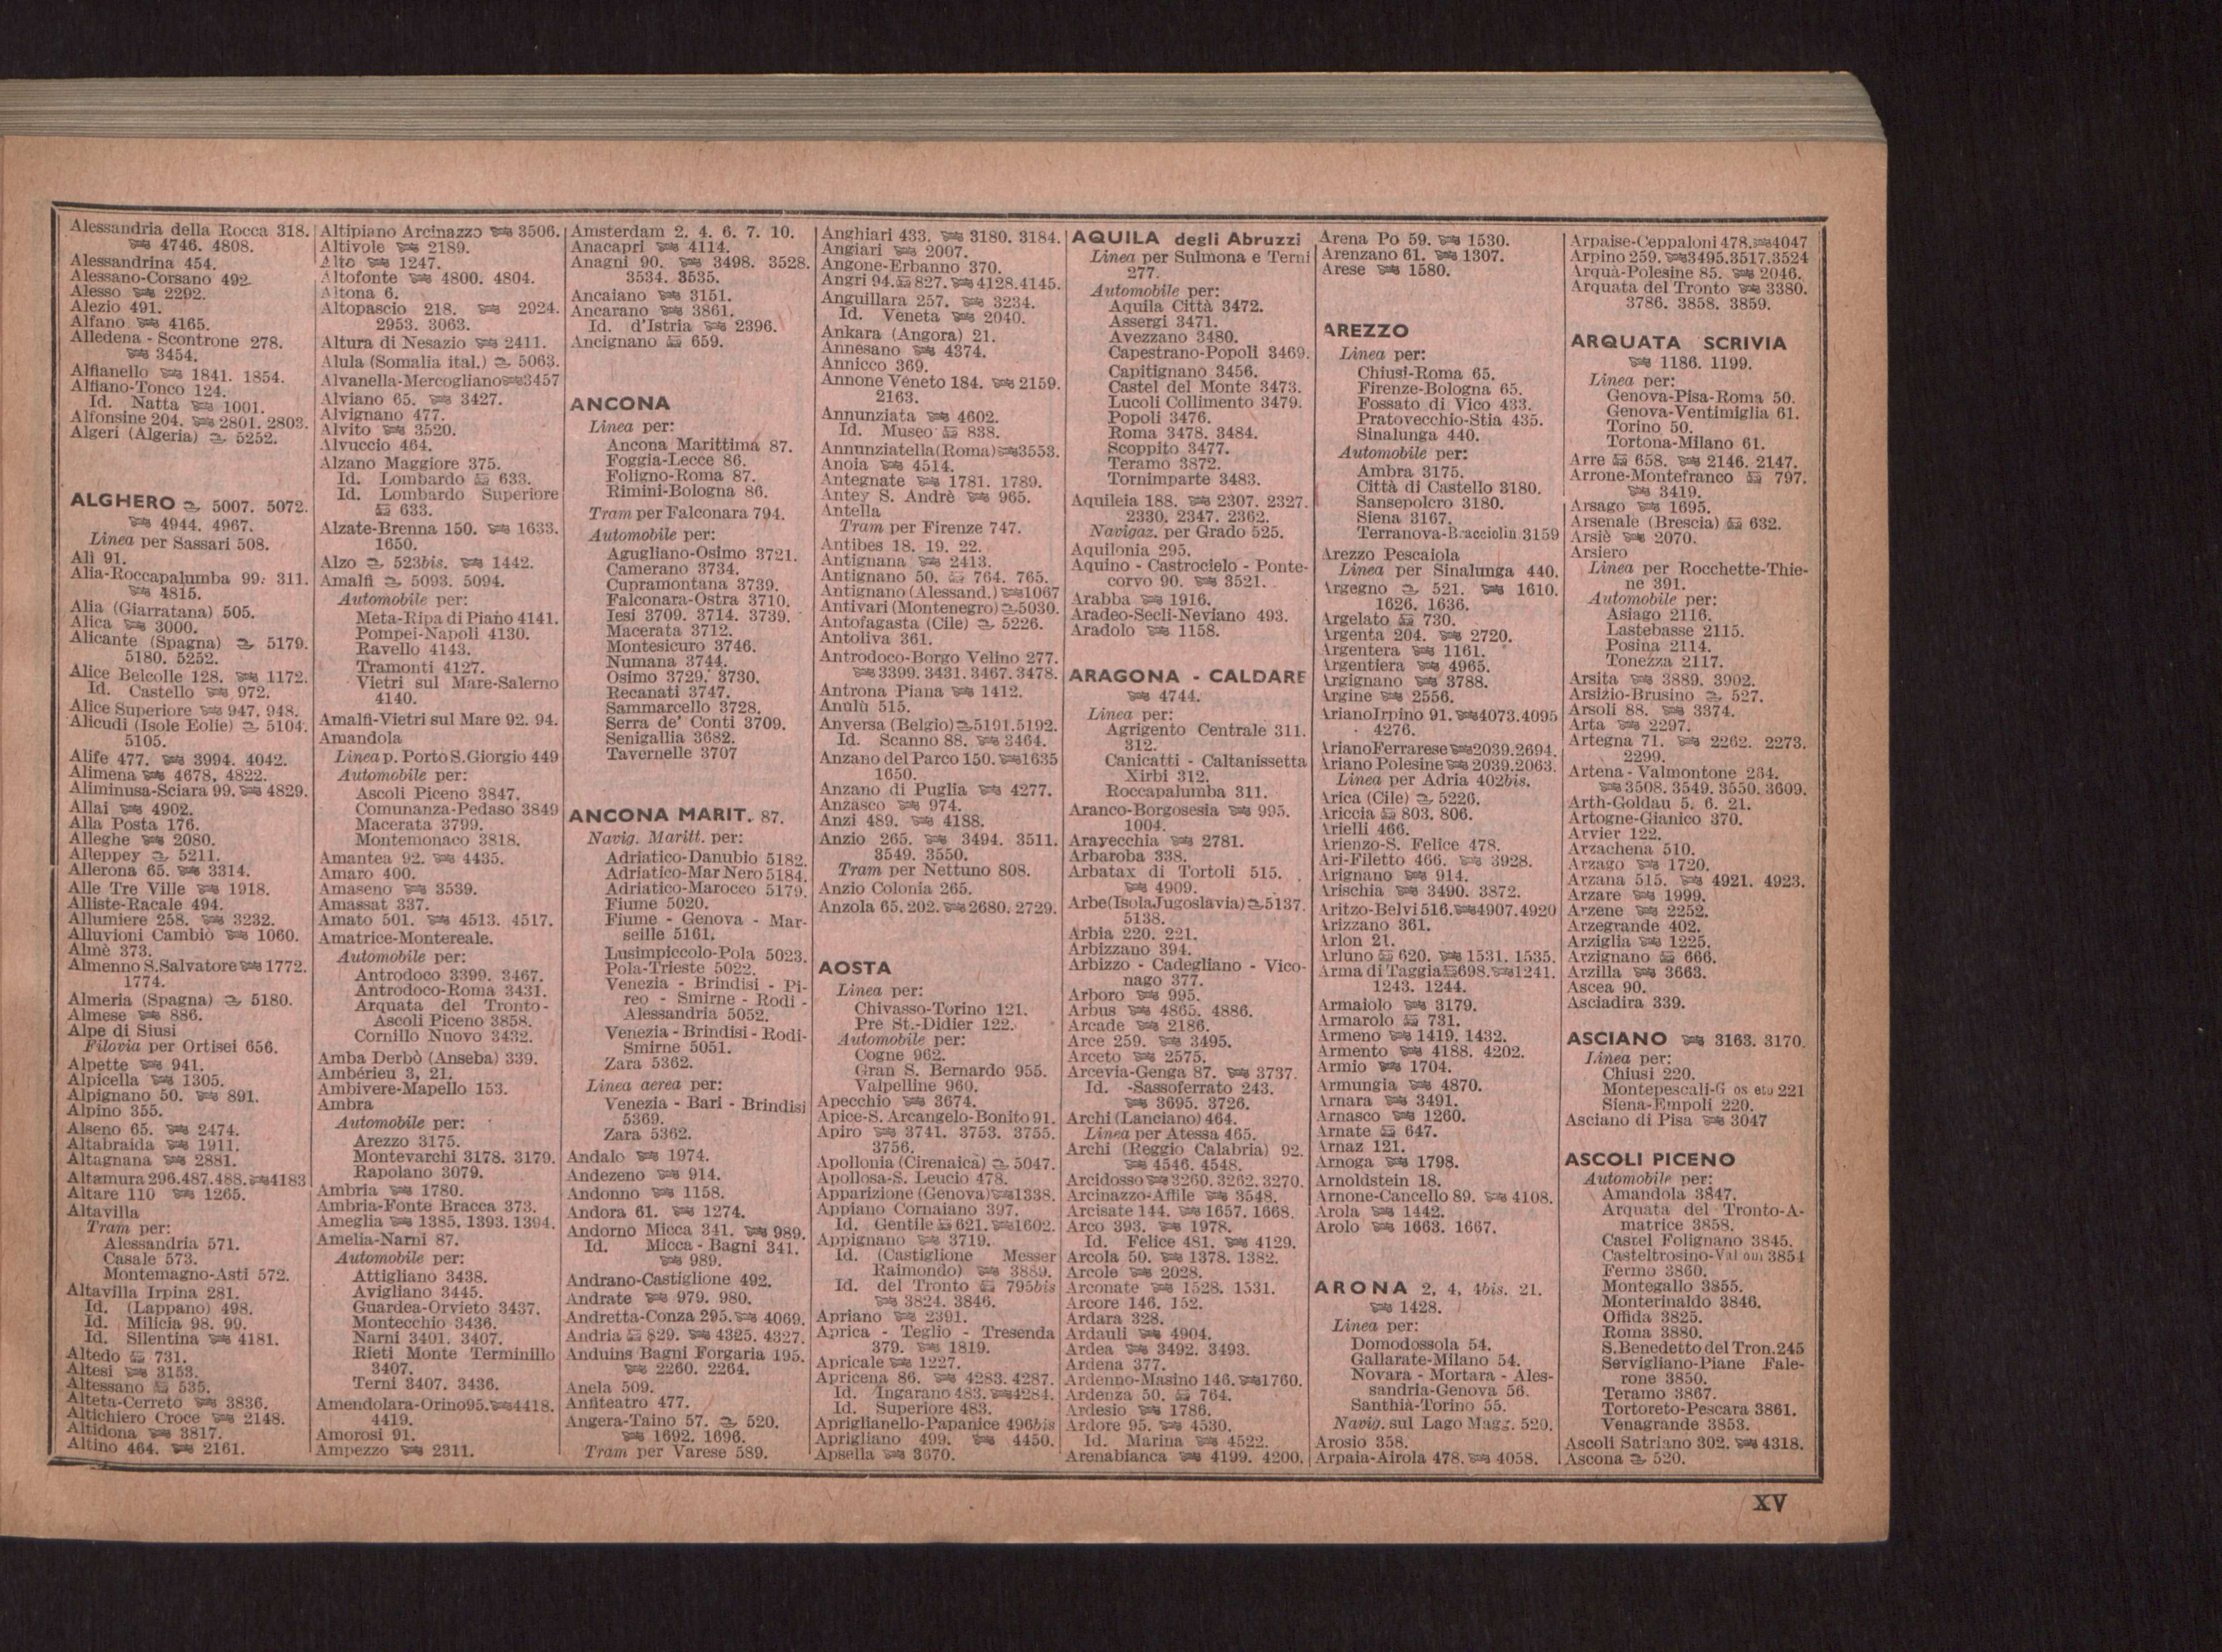 Alessandria della Rocca 318.
4746. 4808.
Alessandrina 454.
Alessano-Corsano 492.
Alesso 2292.
Alezio 491.
Alfano 4165.
Alfedena - Scontrone 278.
3454.
Alfianello 1841. 1854.
Alfiano-Tonco 124.
Id. Natta 1001.
Alfonsine 204. 2801. 2803.
Algeri (Algeria) 5252.
ALGHERO 5007. 5072.
4944. 4967.
Linea per Sassari 508.
Alì 91.
Alia-Roccapalumba 99. 311.
4815.
Alia (Giarratana) 505.
Alica 3000.
Alicante (Spagna) 5179.
5180. 5252.
Alice Belcolle 128. 1172.
Id. Castello 972.
Alice Superiore 947. 948.
Alicudi (Isole Eolie) 5104.
5105.
Alife 477. 3994. 4042.
Alimena 4678. 4822.
Aliminusa-Sciara 99. 4829.
Allai 4902.
Alla Posta 176.
Alleghe 2080.
Alleppey 5211.
Allerona 65. 3314.
Alle Tre Ville 1918.
Alliste-Racale 494.
Allumiere 258. 3232.
Alluvioni Cambiò 1060.
Almè 373.
Almenno S.Salvatore 1772.
1774.
Almeria (Spagna) 5180.
Almese 886.
Alpe di Siusi
Filovia per Ortisei 656.
Alpette 941.
Alpicella 1305.
Alpignano 50. 891.
Alpino 355.
Alseno 65. 2474.
Altabraida 1911.
Altagnana 2881.
Altamura 296.487.488. 4183
Altare 110 1265.
Altavilla
Tram per:
Alessandria 571.
Casale 573.
Montemagno-Asti 572.
Altavilla Irpina 281.
Id. (Lappano) 498.
Id. Milicia 98. 99.
Id. Silentina 4181.
Altedo 731.
Altesi 3153.
Altessano 535.
Alteta-Cerreto 3836.
Altichiero Croce 2148.
Altidona 3817.
Altino 464. 2161.
Altipiano Arcinazzo 3506.
Altivole 2189.
Alto 1247.
Altofonte 4800. 4804.
Altona 6.
Altopascio 218. 2924.
2953. 3063.
Altura di Nesazio 2411.
Alula (Somalia ital.) 5063.
Alvanella-Mercogliano 3457
Alviano 65. 3427.
Alvignano 477.
Alvito 3520.
Alvuccio 464.
Alzano Maggiore 375.
Id. Lombardo 633.
Id. Lombardo Superiore
633.
Alzate-Brenna 150. 1633.
1650.
Alzo 523bis. 1442.
Amalfi 5093. 5094.
Automobile per:
Meta-Ripa di Piano 4141.
Pompei-Napoli 4130.
Ravello 4143.
Tramonti 4127.
Vietri sul Mare-Salerno
4140.
Amalfi-Vietri sul Mare 92. 94.
Amandola
Linea p. Porto S.Giorgio 449
Automobile per:
Ascoli Piceno 3847.
Comunanza-Pedaso 3849
Macerata 3799.
Montemonaco 3818.
Amantea 92. 4435.
Amaro 400.
Amaseno 3539.
Amassat 337.
Amato 501. 4513. 4517.
Amatrice-Montereale.
Automobile per:
Antrodoco 3399. 3467.
Antrodoco-Roma 3431.
Arquata del Tronto-
Ascoli Piceno 3858.
Cornillo Nuovo 3432.
Amba Derbò (Anseba) 339.
Ambérieu 3, 21.
Ambivere-Mapello 153.
Ambra
Automobile per:
Arezzo 3175.
Montevarchi 3178. 3179.
Rapolano 3079.
Ambria 1780.
Ambria-Fonte Bracca 373.
Ameglia 1385. 1393. 1394.
Amelia-Narni 87.
Automobile per:
Attigliano 3438.
Avigliano 3445.
Guardea-Orvieto 3437.
Montecchio 3436.
Narni 3401. 3407.
Rieti Monte Terminillo
3407.
Terni 3407. 3436.
Amendolara-Orino95. 4418.
4419.
Amorosi 91.
Ampezzo 2311.
Amsterdam 2. 4. 6. 7. 10.
Anacapri 4114.
Anagni 90. 3498. 3528.
3534. 3535.
Ancaiano 3151.
Ancarano 3861.
Id. d'Istria 2396.
Ancignano 659.
ANCONA
Linea per:
Ancona Marittima 87.
Foggia-Lecce 86.
Foligno-Roma 87.
Rimini-Bologna 86.
Tram per Falconara 794.
Automobile per:
Agugliano-Osimo 3721.
Camerano 3734.
Cupramontana 3739.
Falconara-Ostra 3710.
Iesi 3709. 3714. 3739.
Macerata 3712.
Montesicuro 3746.
Numana 3744.
Osimo 3729. 3730.
Recanati 3747.
Sammarcello 3728.
Serra de' Conti 3709.
Senigallia 3682.
Tavernelle 3707
ANCONA MARIT. 87.
Navig. Maritt. per:
Adriatico-Danubio 5182.
Adriatico-Mar Nero 5184.
Adriatico-Marocco 5179.
Fiume 5020.
Fiume - Genova - Mar-
seille 5161.
Lusimpiccolo-Pola 5023.
Pola-Trieste 5022.
Venezia - Brindisi - Pi-
reo - Smirne - Rodi -
Alessandria 5052.
Venezia - Brindisi - Rodi-
Smirne 5051.
Zara 5362.
Linea aerea per:
Venezia - Bari - Brindisi
5369.
Zara 5362.
Andalo 1974.
Andezeno 914.
Andonno 1158.
Andora 61. 1274.
Andorno Micca 341. 989.
Id. Micca - Bagni 341.
989.
Andrano-Castiglione 492.
Andrate 979. 980.
Andretta-Conza 295. 4069.
Andria 829. 4325. 4327.
Anduins Bagni Forgaria 195.
2260. 2264.
Anela 509.
Anfiteatro 477.
Angera-Taino 57. 520.
1692. 1696.
Tram per Varese 589.
Anghiari 433. 3180. 3184.
Angiari 2007.
Angone-Erbanno 370.
Angri 94. 827. 4128.4145.
Anguillara 257. 3234.
Id. Veneta 2040.
Ankara (Angora) 21.
Annesano 4374.
Annicco 369.
Annone Veneto 184. 2159.
2163.
Annunziata 4602.
Id. Museo 838.
Annunziatella(Roma) 3553.
Anoia 4514.
Antegnate 1781. 1789.
Antey S. Andrè 965.
Antella
Tram per Firenze 747.
Antibes 18. 19. 22.
Antignana 2413.
Antignano 50. 764. 765.
Antignano (Alessand.) 1067
Antivari (Montenegro) 5030.
Antofagasta (Cile) 5226.
Antoliva 361.
Antrodoco-Borgo Velino 277.
3399. 3431. 3467. 3478.
Antrona Piana 1412.
Anulù 515.
Anversa (Belgio) 5191.5192.
Id. Scanno 88. 3464.
Anzano del Parco 150. 1635
1650.
Anzano di Puglia 4277.
Anzasco 974.
Anzi 489. 4188.
Anzio 265. 3494. 3511.
3549. 3550.
Tram per Nettuno 808.
Anzio Colonia 265.
Anzola 65. 202. 2680. 2729.
AOSTA
Linea per:
Chivasso-Torino 121.
Pre St.-Didier 122.
Automobile per:
Cogne 962.
Gran S. Bernardo 955.
Valpelline 960.
Apecchio 3674.
Apice-S. Arcangelo-Bonito 91.
Apiro 3741. 3753. 3755.
3756.
Apollonia (Cirenaica) 5047.
Apollosa-S. Leucio 478.
Apparizione (Genova) 1338.
Appiano Cornaiano 397.
Id. Gentile 621. 1602.
Appignano 3719.
Id. (Castiglione Messer
Raimondo) 3889.
Id. del Tronto 795bis
3824. 3846.
Apriano 2391.
Aprica - Teglio - Tresenda
379. 1819.
Apricale 1227.
Apricena 86. 4283. 4287.
Id. Ingarano 483. 4284.
Id. Superiore 483.
Apriglianello-Papanice 496bis
Aprigliano 499. 4450.
Apsella 3670.
AQUILA degli Abruzzi
Linea per Sulmona e Terni
277.
Automobile per:
Aquila Città 3472.
Assergi 3471.
Avezzano 3480.
Capestrano-Popoli 3469.
Capitignano 3456.
Castel del Monte 3473.
Lucoli Collimento 3479.
Popoli 3476.
Roma 3478. 3484.
Scoppito 3477.
Teramo 3872.
Tornimparte 3483.
Aquileia 188. 2307. 2327.
2330. 2347. 2362.
Navigaz. per Grado 525.
Aquilonia 295.
Aquino - Castrocielo - Ponte-
corvo 90. 3521.
Arabba 1916.
Aradeo-Seclì-Neviano 493.
Aradolo 1158.
ARAGONA - CALDARE
4744.
Linea per:
Agrigento Centrale 311.
312.
Canicatti - Caltanissetta
Xirbi 312.
Roccapalumba 311.
Aranco-Borgosesia 995.
1004.
Arayecchia 2781.
Arbaroba 338.
Arbatax di Tortolì 515.
4909.
Arbe(IsolaJugoslavia) 5137.
5138.
Arbia 220. 221.
Arbizzano 394.
Arbizzo - Cadegliano - Vico-
nago 377.
Arboro 995.
Arbus 4865. 4886.
Arcade 2186.
Arce 259. 3495.
Arceto 2575.
Arcevia-Genga 87. 3737.
Id. -Sassoferrato 243.
3695. 3726.
Archi (Lanciano) 464.
Linea per Atessa 465.
Archi (Reggio Calabria) 92.
4546. 4548.
Arcidosso 3260. 3262. 3270.
Arcinazzo-Affile 3548.
Arcisate 144. 1657. 1668.
Arco 393. 1978.
Id. Felice 481. 4129.
Arcola 50. 1378. 1382.
Arcole 2028.
Arconate 1528. 1531.
Arcore 146. 152.
Ardara 328.
Ardauli 4904.
Ardea 3492. 3493.
Ardena 377.
Ardenno-Masino 146. 1760.
Ardenza 50. 764.
Ardesio 1786.
Ardore 95. 4530.
Id. Marina 4522.
Arenabianca 4199. 4200.
Arena Po 59. 1530.
Arenzano 61. 1307.
Arese 1580.
AREZZO
Linea per:
Chiusi-Roma 65.
Firenze-Bologna 65.
Fossato di Vico 433.
Pratovecchio-Stia 435.
Sinalunga 440.
Automobile per:
Ambra 3175.
Città di Castello 3180.
Sansepolcro 3180.
Siena 3167.
Terranova-Bracciolin 3159
Arezzo Pescaiola
Linea per Sinalunga 440.
Argegno 521. 1610.
1626. 1636.
Argelato 730.
Argenta 204. 2720.
Argentera 1161.
Argentiera 4965.
Argignano 3788.
Argine 2556.
ArianoIrpino 91. 4073.4095
4276.
ArianoFerrarese 2039.2694.
Ariano Polesine 2039.2063.
Linea per Adria 402bis.
Arica (Cile) 5226.
Ariccia 803. 806.
Arielli 466.
Arienzo-S. Felice 478.
Ari-Filetto 466. 3928.
Arignano 914.
Arischia 3490. 3872.
Aritzo-Belvì 516. 4907.4920
Arizzano 361.
Arlon 21.
Arluno 620. 1531. 1535.
Arma di Taggia 698. 1241.
1243. 1244.
Armaiolo 3179.
Armarolo 731.
Armeno 1419. 1432.
Armento 4188. 4202.
Armio 1704.
Armungia 4870.
Arnara 3491.
Arnasco 1260.
Arnate 647.
Arnaz 121.
Arnoga 1798.
Arnoldstein 18.
Arnone-Cancello 89. 4108.
Arola 1442.
Arolo 1663. 1667.
ARONA 2, 4, 4bis. 21.
1428.
Linea per:
Domodossola 54.
Gallarate-Milano 54.
Novara - Mortara - Ales-
sandria-Genova 56.
Santhià-Torino 55.
Navig. sul Lago Magg. 520.
Arosio 358.
Arpaia-Airola 478. 4058.
Arpaise-Ceppaloni 478. 4047
Arpino 259. 3495.3517.3524
Arquà-Polesine 85. 2046.
Arquata del Tronto 3380.
3786. 3858. 3859.
ARQUATA SCRIVIA
1186. 1199.
Linea per:
Genova-Pisa-Roma 50.
Genova-Ventimiglia 61.
Torino 50.
Tortona-Milano 61.
Arre 658. 2146. 2147.
Arrone-Montefranco 797.
3419.
Arsago 1695.
Arsenale (Brescia) 632.
Arsiè 2070.
Arsiero
Linea per Rocchette-Thie-
ne 391.
Automobile per:
Asiago 2116.
Lastebasse 2115.
Posina 2114.
Tonezza 2117.
Arsita 3889. 3902.
Arsizio-Brusino 527.
Arsoli 88. 3374.
Arta 2297.
Artegna 71. 2262. 2273.
2299.
Artena - Valmontone 264.
3508. 3549. 3550. 3609.
Arth-Goldau 5. 6. 21.
Artogne-Gianico 370.
Arvier 122.
Arzachena 510.
Arzago 1720.
Arzana 515. 4921. 4923.
Arzare 1999.
Arzene 2252.
Arzegrande 402.
Arziglia 1225.
Arzignano 666.
Arzilla 3663.
Ascea 90.
Asciadira 339.
ASCIANO 3163. 3170.
Linea per:
Chiusi 220.
Montepescali-G os eto 221
Siena-Empoli 220.
Asciano di Pisa 3047
ASCOLI PICENO
Automobile per:
Amandola 3847.
Arquata del Tronto-A-
matrice 3858.
Castel Folignano 3845.
Casteltrosino- 3854
Fermo 3860.
Montegallo 3855.
Monterinaldo 3846.
Offida 3825.
Roma 3880.
S.Benedetto del Tron.245
Servigliano-Piane Fale-
rone 3850.
Teramo 3867.
Tortoreto-Pescara 3861.
Venagrande 3853.
Ascoli Satriano 302. 4318.
Ascona 520.
XV